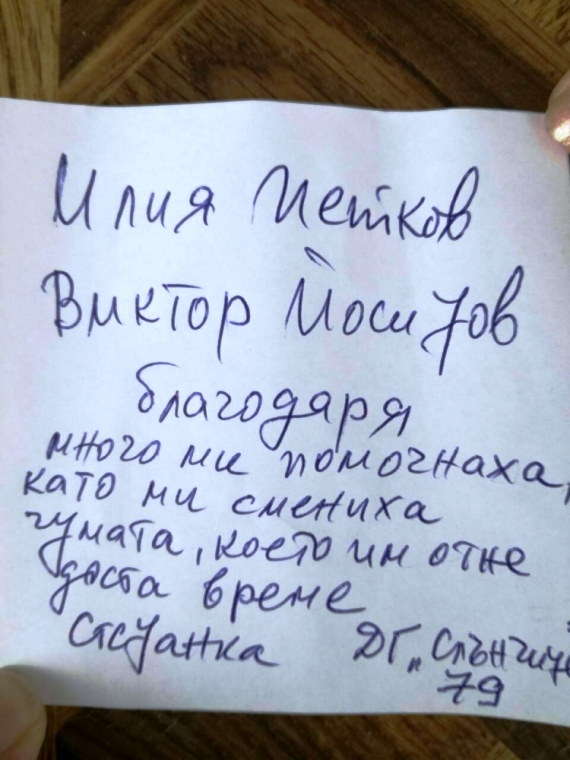 Илия Петков
Виктор Йосифов
благодаря
много ми помогнаха,
като ми смениха
гумата, което им отне
доста време
ДГ „
79